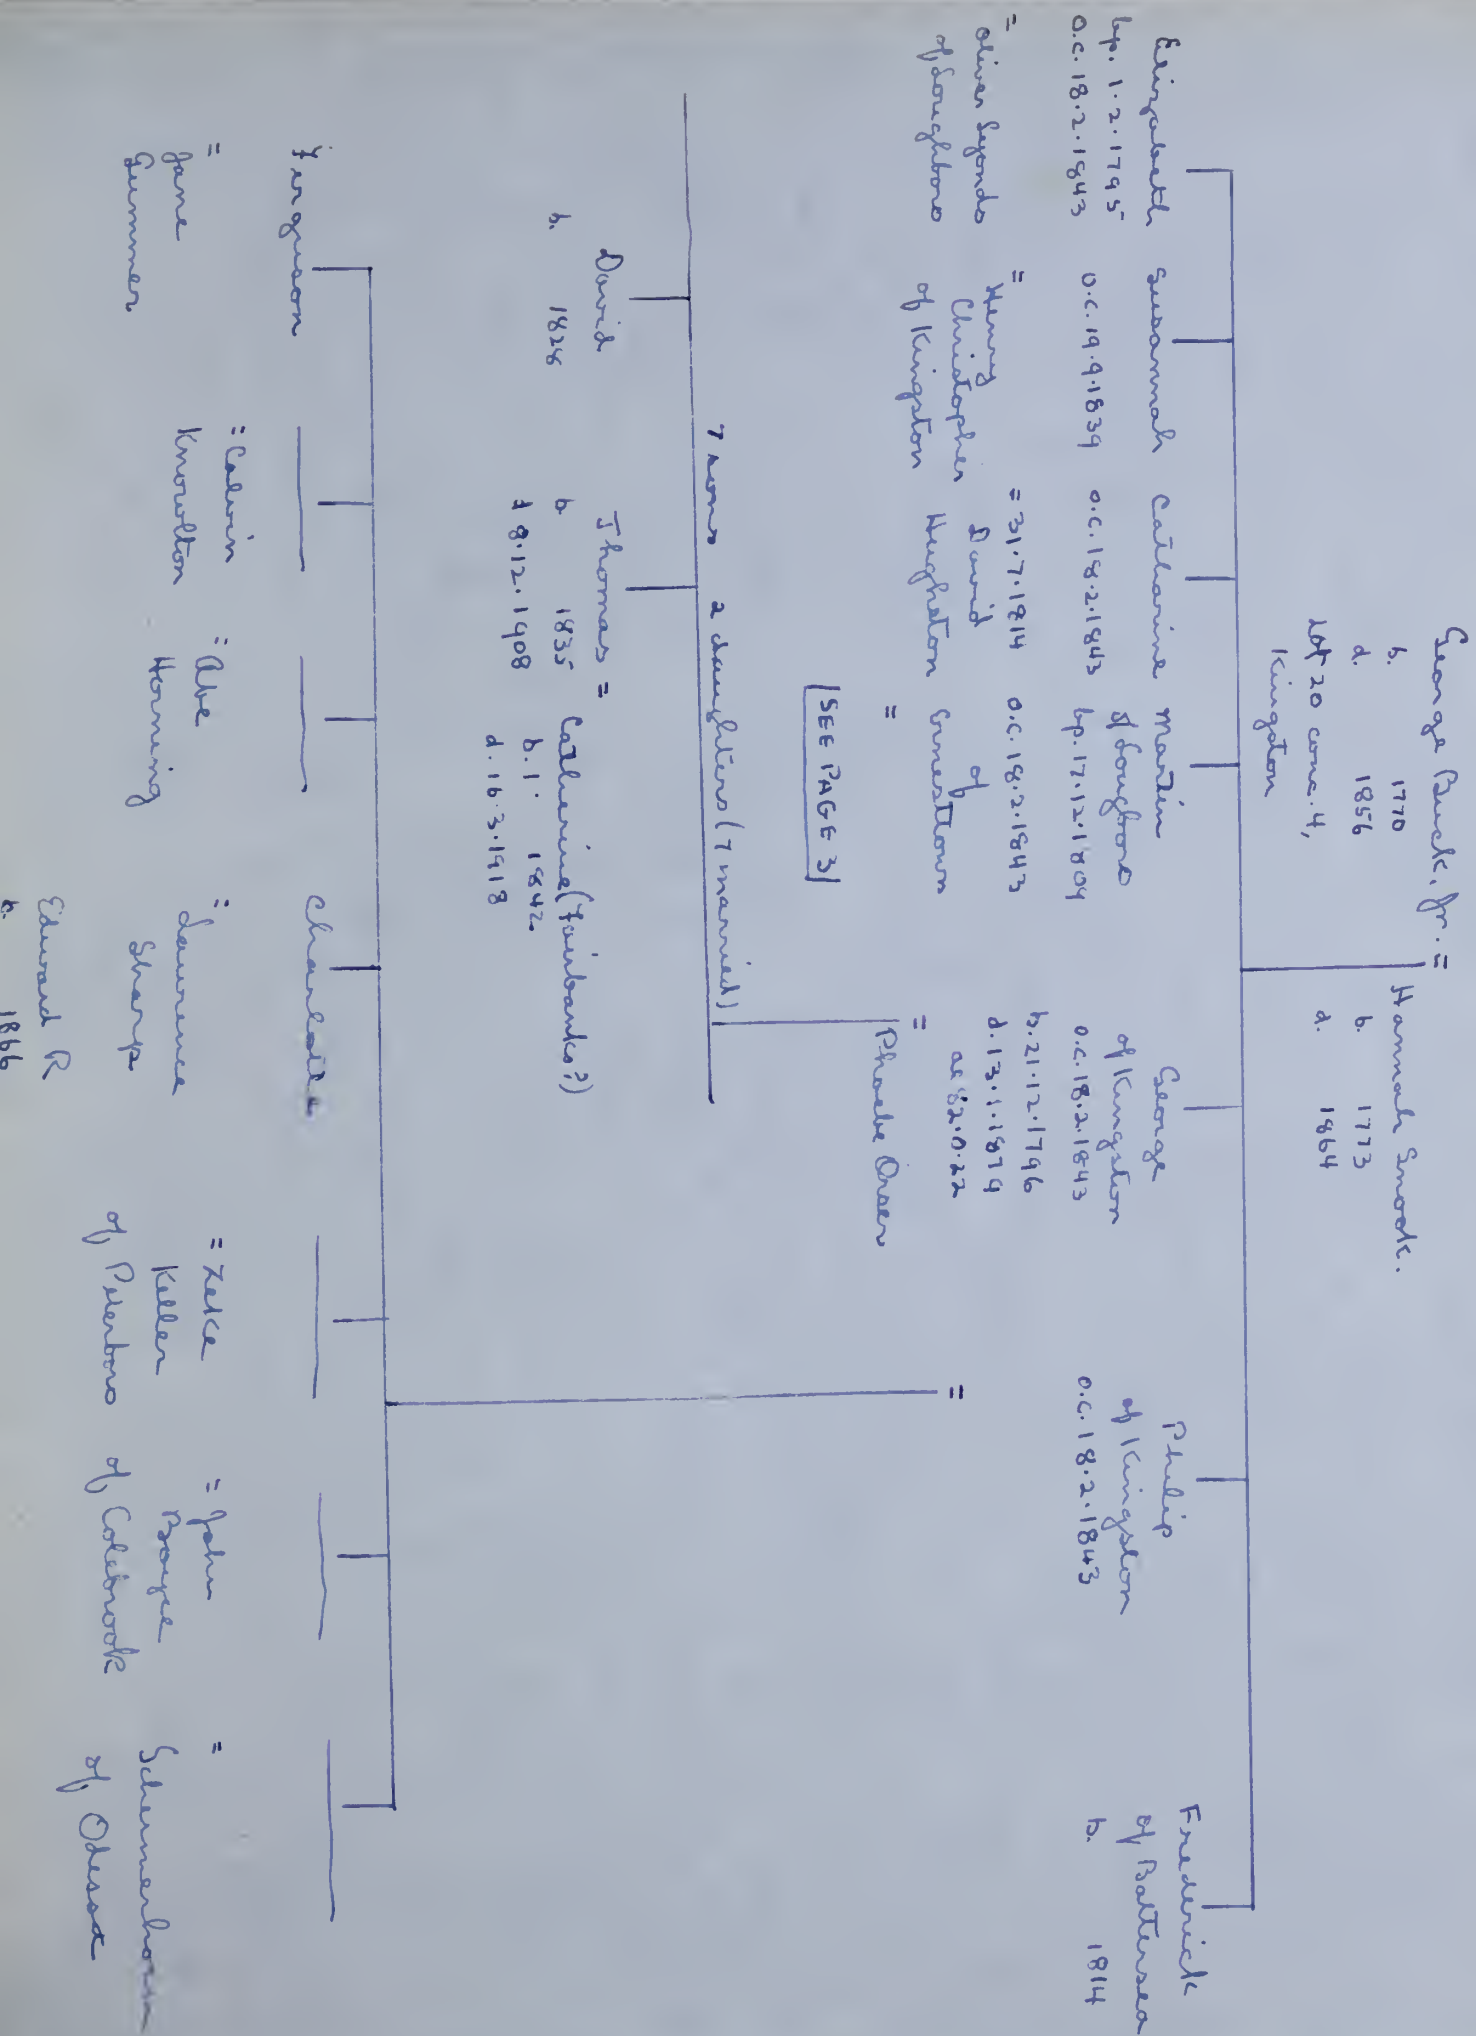 George Buck, Jr. = Hannah Smook.
b. 1770 b. 1773
d. 1856 d. 1864
Lot 20 conc. 4,
Kingston
Elizabeth
bp. 1.2.1795
o.c. 18.2.1843
=
of Loughboro
Susannah
o.c. 19.9.1839
=
Henry
Christopher
of Kingston
Catharine
o.c. 18.2.1843
= 31.7.1814
David
Hugheton
Martin
of Loughboro
bp. 17.12.1804
o.c. 18.2.1843
of
Ernesttown
=
SEE PAGE 3
George
of Kingston
o.c. 18.2.1843
b. 21.12.1796
d. 13.1.1879
ae 82.0.22
=
Phoebe Orser
Philip
of Kingston
o.c. 18.2.1843
=
Frederick
of Battersea
b. 1814
7 sons 2 daughters (7 married)
David
b. 1828
Thomas =
b. 1835
‡ 8.12.1908
Catherine (Fairbanks?)
b. 1. 1842
d. 16.3.1918
Ferguson
=
Jane
Summer
= Calvin
Knowlton
= Abe
Horning
Charlotte
=
Lawrence
Sharp
Edward R
b. 1866
= Zeke
Keller
of Peterboro
= John
Boyce
of Colebrook
=
Schermerhorn
of Odessa